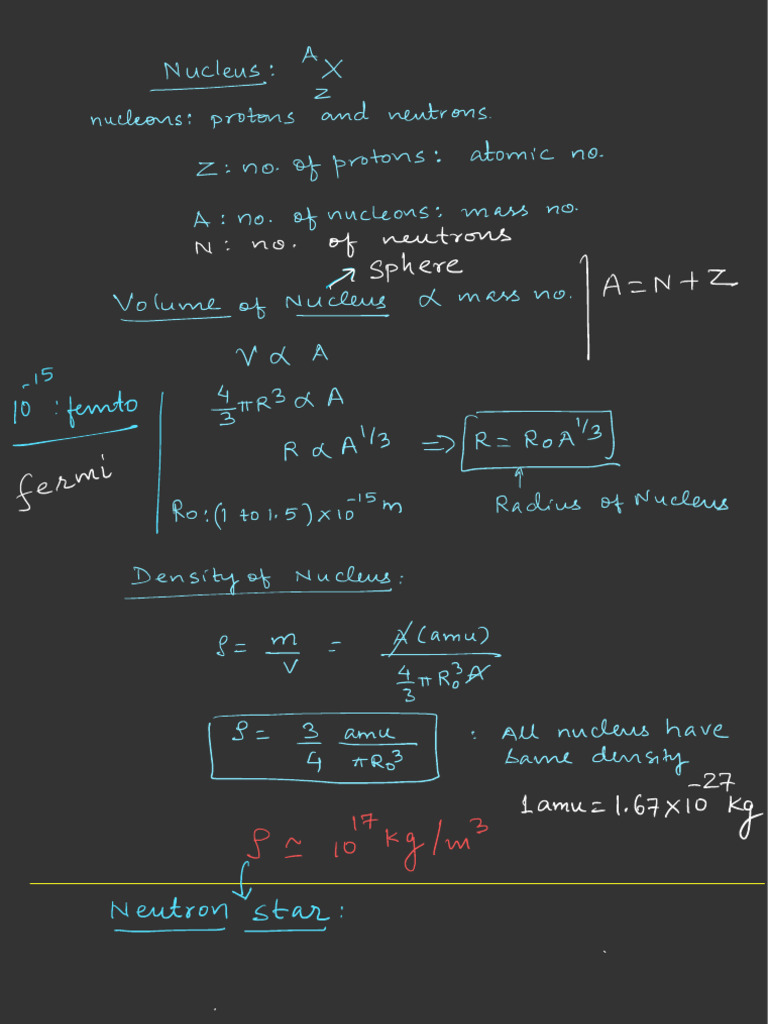 Nucleus: ᴬX
Z
nucleons: protons and neutrons.
Z: no. of protons: atomic no.
A: no. of nucleons: mass no.
N: no. of neutrons
sphere
Volume of Nucleus ∝ mass no.
A = N + Z
V ∝ A
10⁻¹⁵ : femto
fermi
4/3 πR³ ∝ A
R ∝ A^1/3 => R = R₀A^1/3
Radius of Nucleus
R₀: (1 to 1.5) × 10⁻¹⁵ m
Density of Nucleus:
ρ = m/V = A(amu) / 4/3 πR₀³A
ρ = 3/4 amu/πR₀³ : All nucleus have
same density
1 amu = 1.67 × 10⁻²⁷ kg
ρ ≃ 10¹⁷ kg/m³
Neutron star: